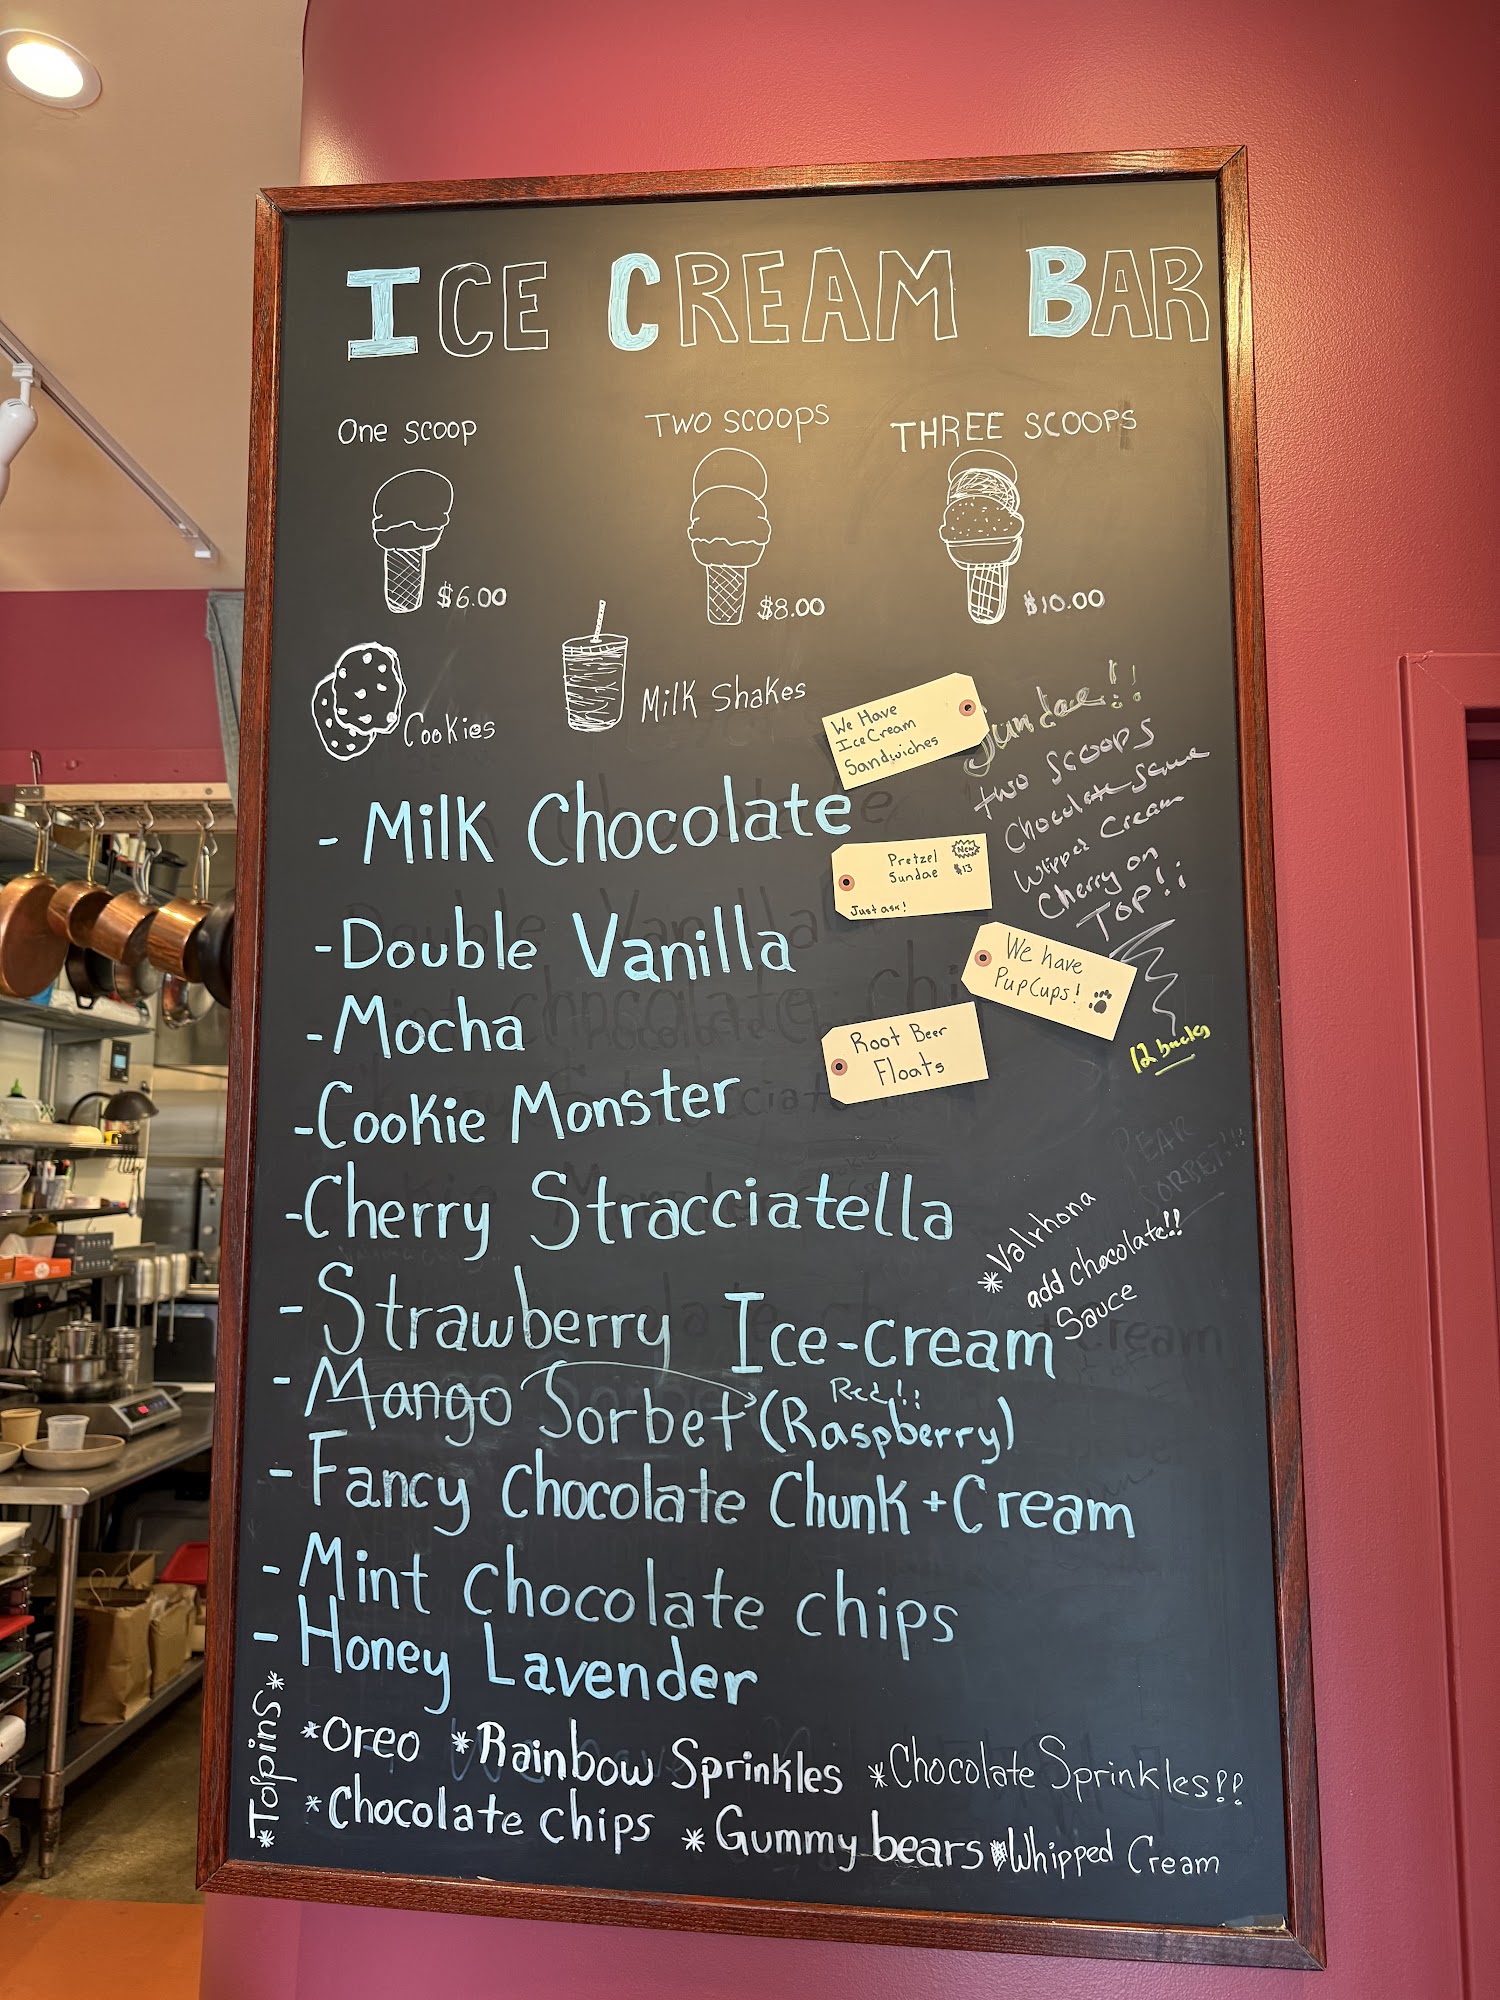 ICE CREAM BAR
One scoop
TWO SCOOPS
THREE SCOOPS
$6.00
$8.00
$10.00
Cookies
Milk Shakes
We Have
Ice Cream
Sandwiches
Sundae!!
two scoops
Chocolate Sauce
Whipped Cream
Cherry on
Top!!
12 bucks
- Milk Chocolate
Pretzel
Sundae
New
$13
Just ask!
- Double Vanilla
We have
PupCups!
- Mocha
Root Beer
Floats
- Cookie Monster
PEAR
SORBET!!!
- Cherry Stracciatella
*Valrhona
add chocolate!!
Sauce
- Strawberry Ice-cream
- Mango Sorbet (Raspberry)
Red!!
- Fancy Chocolate Chunk + Cream
- Mint Chocolate chips
- Honey Lavender
*Toppins*
*Oreo *Rainbow Sprinkles *Chocolate Sprinkles!!
*Chocolate chips *Gummy bears *Whipped Cream